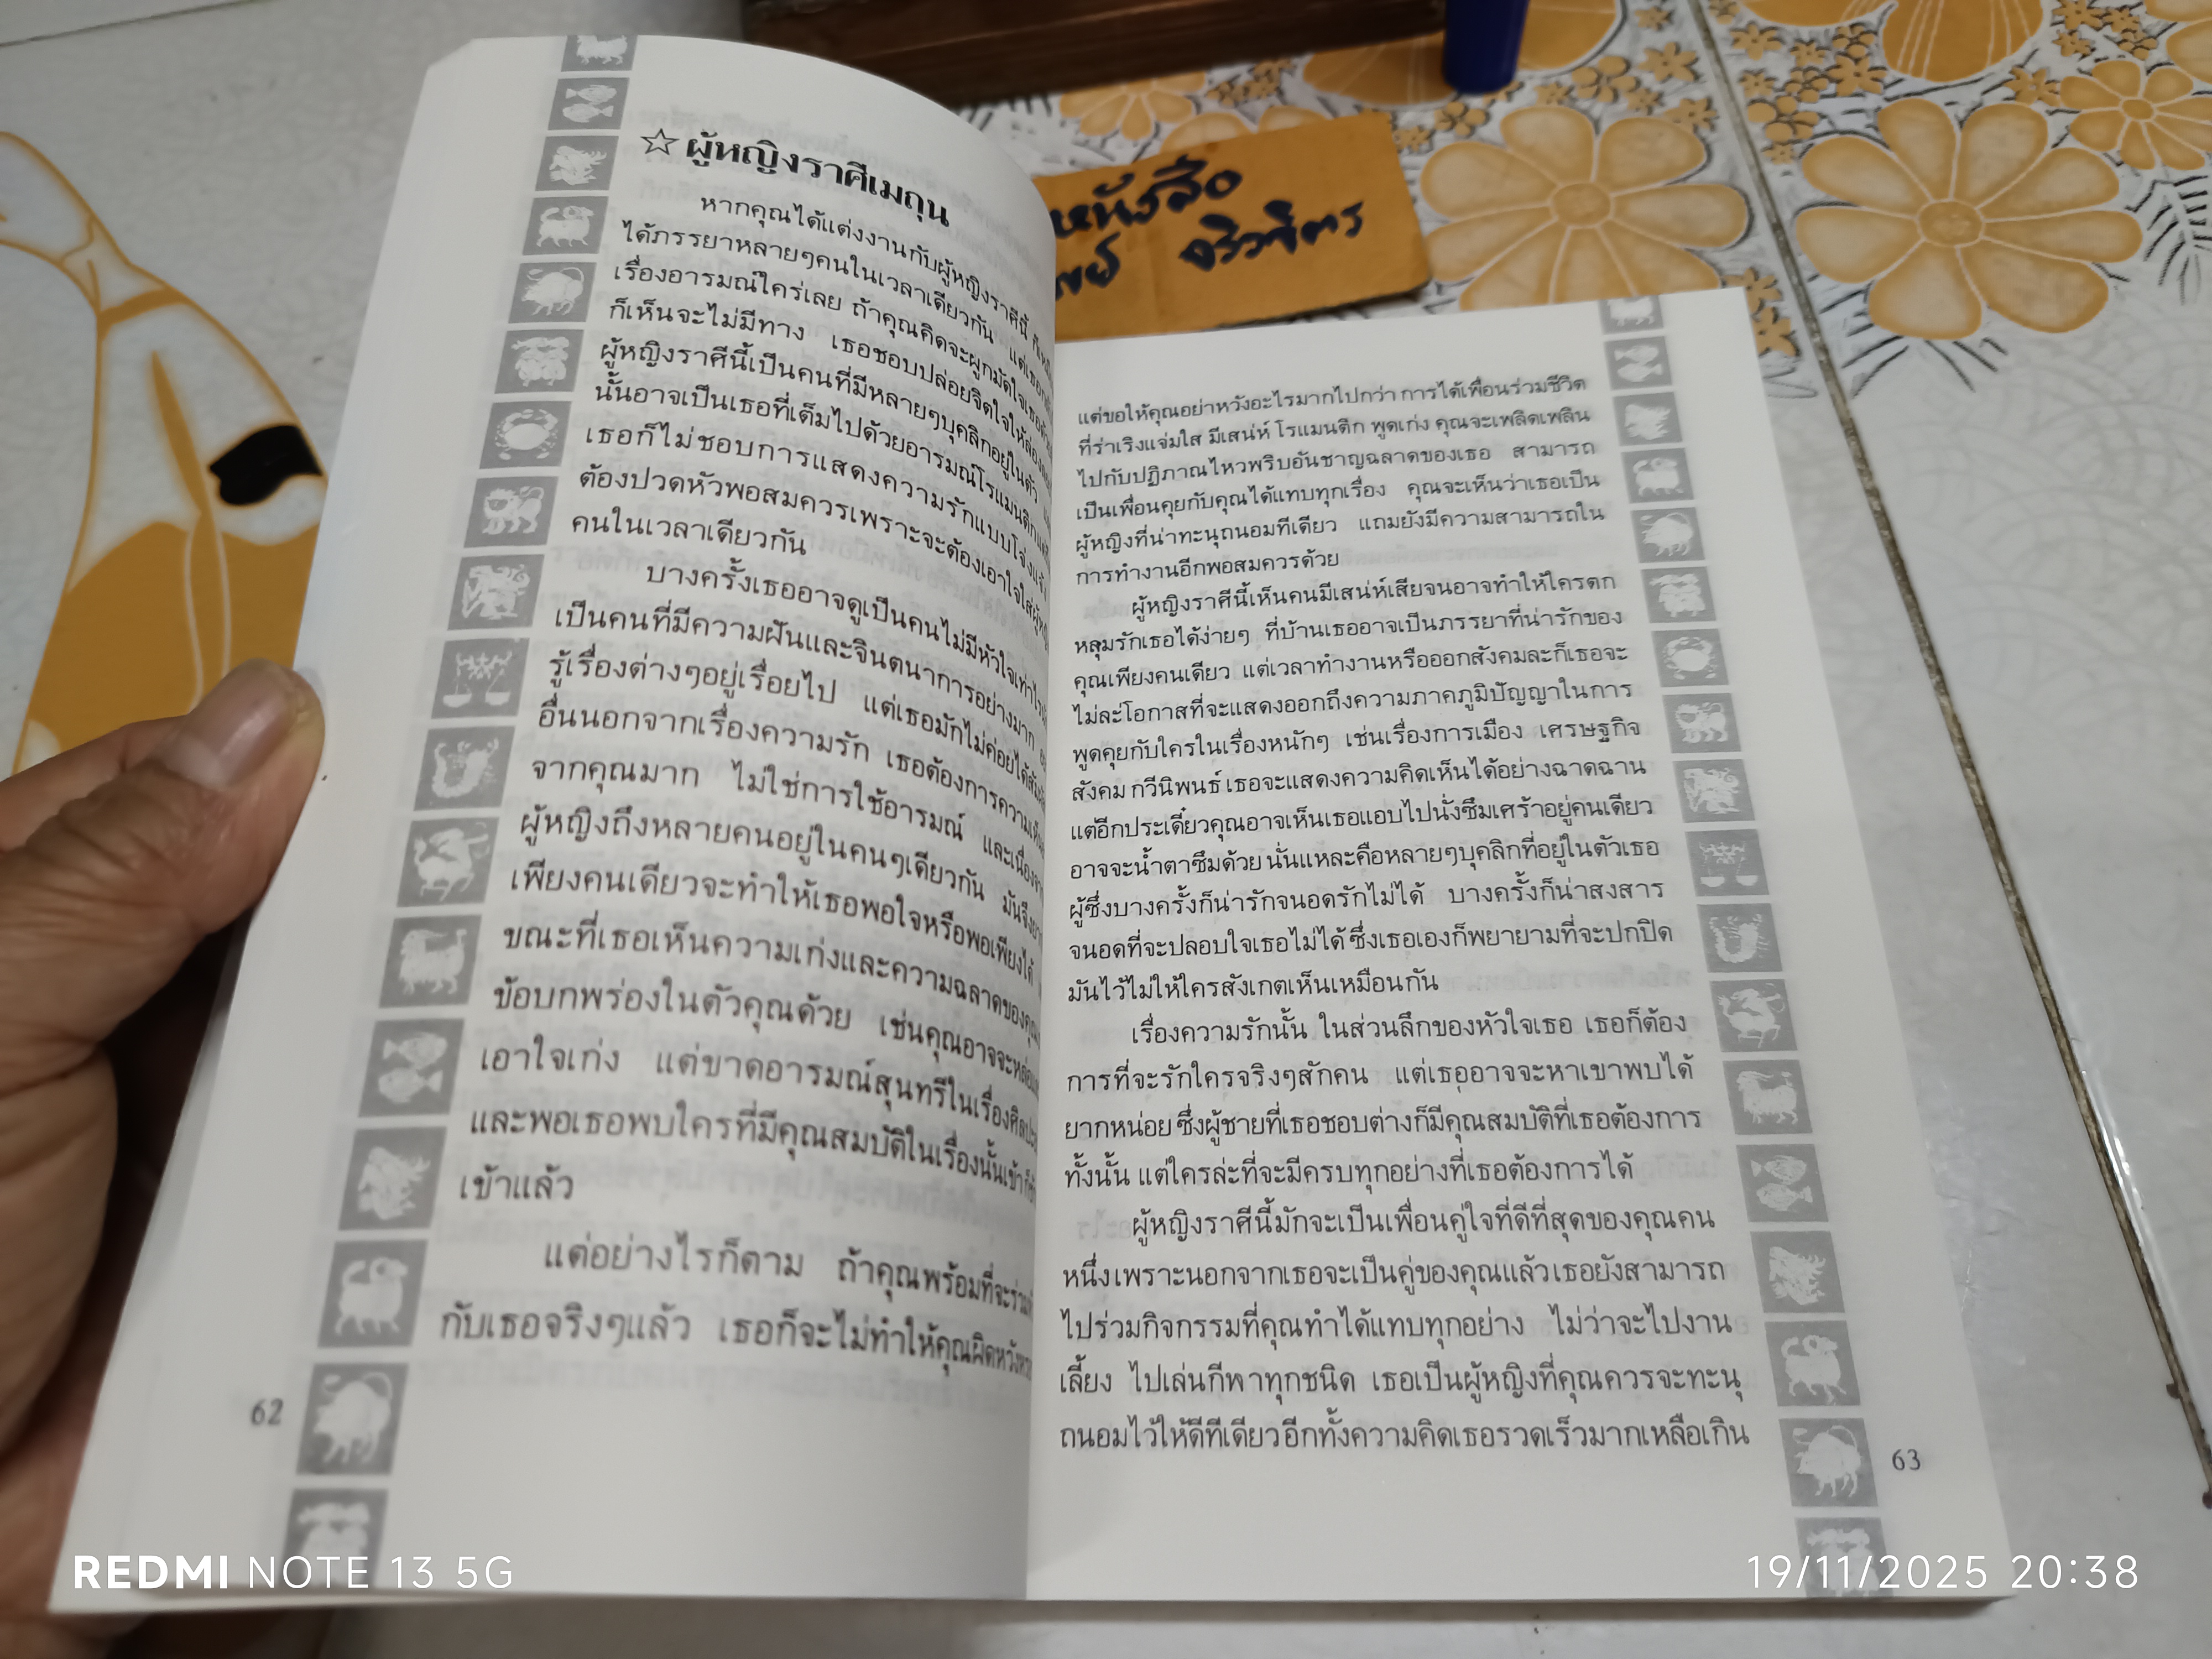 ☆ ผู้หญิงราศีเมถุน
หากคุณได้แต่งงานกับผู้หญิงราศีนี้
ได้ภรรยาหลายๆคนในเวลาเดียวกัน แต่เธอ
เรื่องอารมณ์ใคร่เลย ถ้าคุณคิดจะผูกมัดใจเธอด้วย
ก็เห็นจะไม่มีทาง เธอชอบปล่อยจิตใจให้ล่องลอย
ผู้หญิงราศีนี้เป็นคนที่มีหลายๆบุคลิกอยู่ในตัว
นั้นอาจเป็นเธอที่เต็มไปด้วยอารมณ์โรแมนติก
เธอก็ไม่ชอบการแสดงความรักแบบโจ่งแจ้ง
ต้องปวดหัวพอสมควรเพราะจะต้องเอาใจใส่
คนในเวลาเดียวกัน
บางครั้งเธออาจดูเป็นคนไม่มีหัวใจเท่าไร
เป็นคนที่มีความฝันและจินตนาการอย่างมาก
รู้เรื่องต่างๆอยู่เรื่อยไป แต่เธอมักไม่ค่อยได้
อื่นนอกจากเรื่องความรัก เธอต้องการความ
จากคุณมาก ไม่ใช่การใช้อารมณ์ และเนื่องจาก
ผู้หญิงถึงหลายคนอยู่ในคนๆเดียวกัน มันจึง
เพียงคนเดียวจะทำให้เธอพอใจหรือพอเพียงได้
ขณะที่เธอเห็นความเก่งและความฉลาดของคุณ
ข้อบกพร่องในตัวคุณด้วย เช่นคุณอาจจะหล่อ
เอาใจเก่ง แต่ขาดอารมณ์สุนทรีในเรื่องศิลปะ
และพอเธอพบใครที่มีคุณสมบัติในเรื่องนั้นเข้า
เข้าแล้ว
แต่อย่างไรก็ตาม ถ้าคุณพร้อมที่จะร่วม
กับเธอจริงๆแล้ว เธอก็จะไม่ทำให้คุณผิดหวัง
62
หนังสือ
จริวจิตร
แต่ขอให้คุณอย่าหวังอะไรมากไปกว่า การได้เพื่อนร่วมชีวิต
ที่ร่าเริงแจ่มใส มีเสน่ห์ โรแมนติก พูดเก่ง คุณจะเพลิดเพลิน
ไปกับปฏิภาณไหวพริบอันชาญฉลาดของเธอ สามารถ
เป็นเพื่อนคุยกับคุณได้แทบทุกเรื่อง คุณจะเห็นว่าเธอเป็น
ผู้หญิงที่น่าทะนุถนอมทีเดียว แถมยังมีความสามารถใน
การทำงานอีกพอสมควรด้วย
ผู้หญิงราศีนี้เห็นคนมีเสน่ห์เสียจนอาจทำให้ใครตก
หลุมรักเธอได้ง่ายๆ ที่บ้านเธออาจเป็นภรรยาที่น่ารักของ
คุณเพียงคนเดียว แต่เวลาทำงานหรือออกสังคมละก็เธอจะ
ไม่ละโอกาสที่จะแสดงออกถึงความภาคภูมิปัญญาในการ
พูดคุยกับใครในเรื่องหนักๆ เช่นเรื่องการเมือง เศรษฐกิจ
สังคม กวีนิพนธ์ เธอจะแสดงความคิดเห็นได้อย่างฉาดฉาน
แต่อีกประเดี๋ยวคุณอาจเห็นเธอแอบไปนั่งซึมเศร้าอยู่คนเดียว
อาจจะน้ำตาซึมด้วย นั่นแหละคือหลายๆบุคลิกที่อยู่ในตัวเธอ
ผู้ซึ่งบางครั้งก็น่ารักจนอดรักไม่ได้ บางครั้งก็น่าสงสาร
จนอดที่จะปลอบใจเธอไม่ได้ ซึ่งเธอเองก็พยายามที่จะปกปิด
มันไว้ไม่ให้ใครสังเกตเห็นเหมือนกัน
เรื่องความรักนั้น ในส่วนลึกของหัวใจเธอ เธอก็ต้อง
การที่จะรักใครจริงๆสักคน แต่เธออาจจะหาเขาพบได้
ยากหน่อย ซึ่งผู้ชายที่เธอชอบต่างก็มีคุณสมบัติที่เธอต้องการ
ทั้งนั้น แต่ใครล่ะที่จะมีครบทุกอย่างที่เธอต้องการได้
ผู้หญิงราศีนี้มักจะเป็นเพื่อนคู่ใจที่ดีที่สุดของคุณคน
หนึ่ง เพราะนอกจากเธอจะเป็นคู่ของคุณแล้วเธอยังสามารถ
ไปร่วมกิจกรรมที่คุณทำได้แทบทุกอย่าง ไม่ว่าจะไปงาน
เลี้ยง ไปเล่นกีฬาทุกชนิด เธอเป็นผู้หญิงที่คุณควรจะทะนุ
ถนอมไว้ให้ดีทีเดียว อีกทั้งความคิดเธอรวดเร็วมากเหลือเกิน
63
REDMI NOTE 13 5G
19/11/2025 20:38